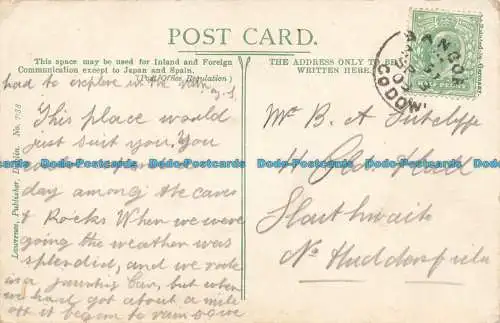 POST CARD.
This space may be used for Inland and Foreign
Communication except to Japan and Spain.
(Post Office Regulation)
THE ADDRESS ONLY TO BE
WRITTEN HERE.
had to explore in the rain
This place would
just suit you. You
day among the caves
& Rocks When we were
going the weather was
splendid, and we rode
in a jaunting Car, but when
we had got about a mile
off it began to rain & we
Mr B. A Sutcliffe
Old
Slaithwaite
Nr Huddersfield
BANGOR
CO DOWN
Lawrence, Publisher, Dublin. No.
Bedo-Postcards.com